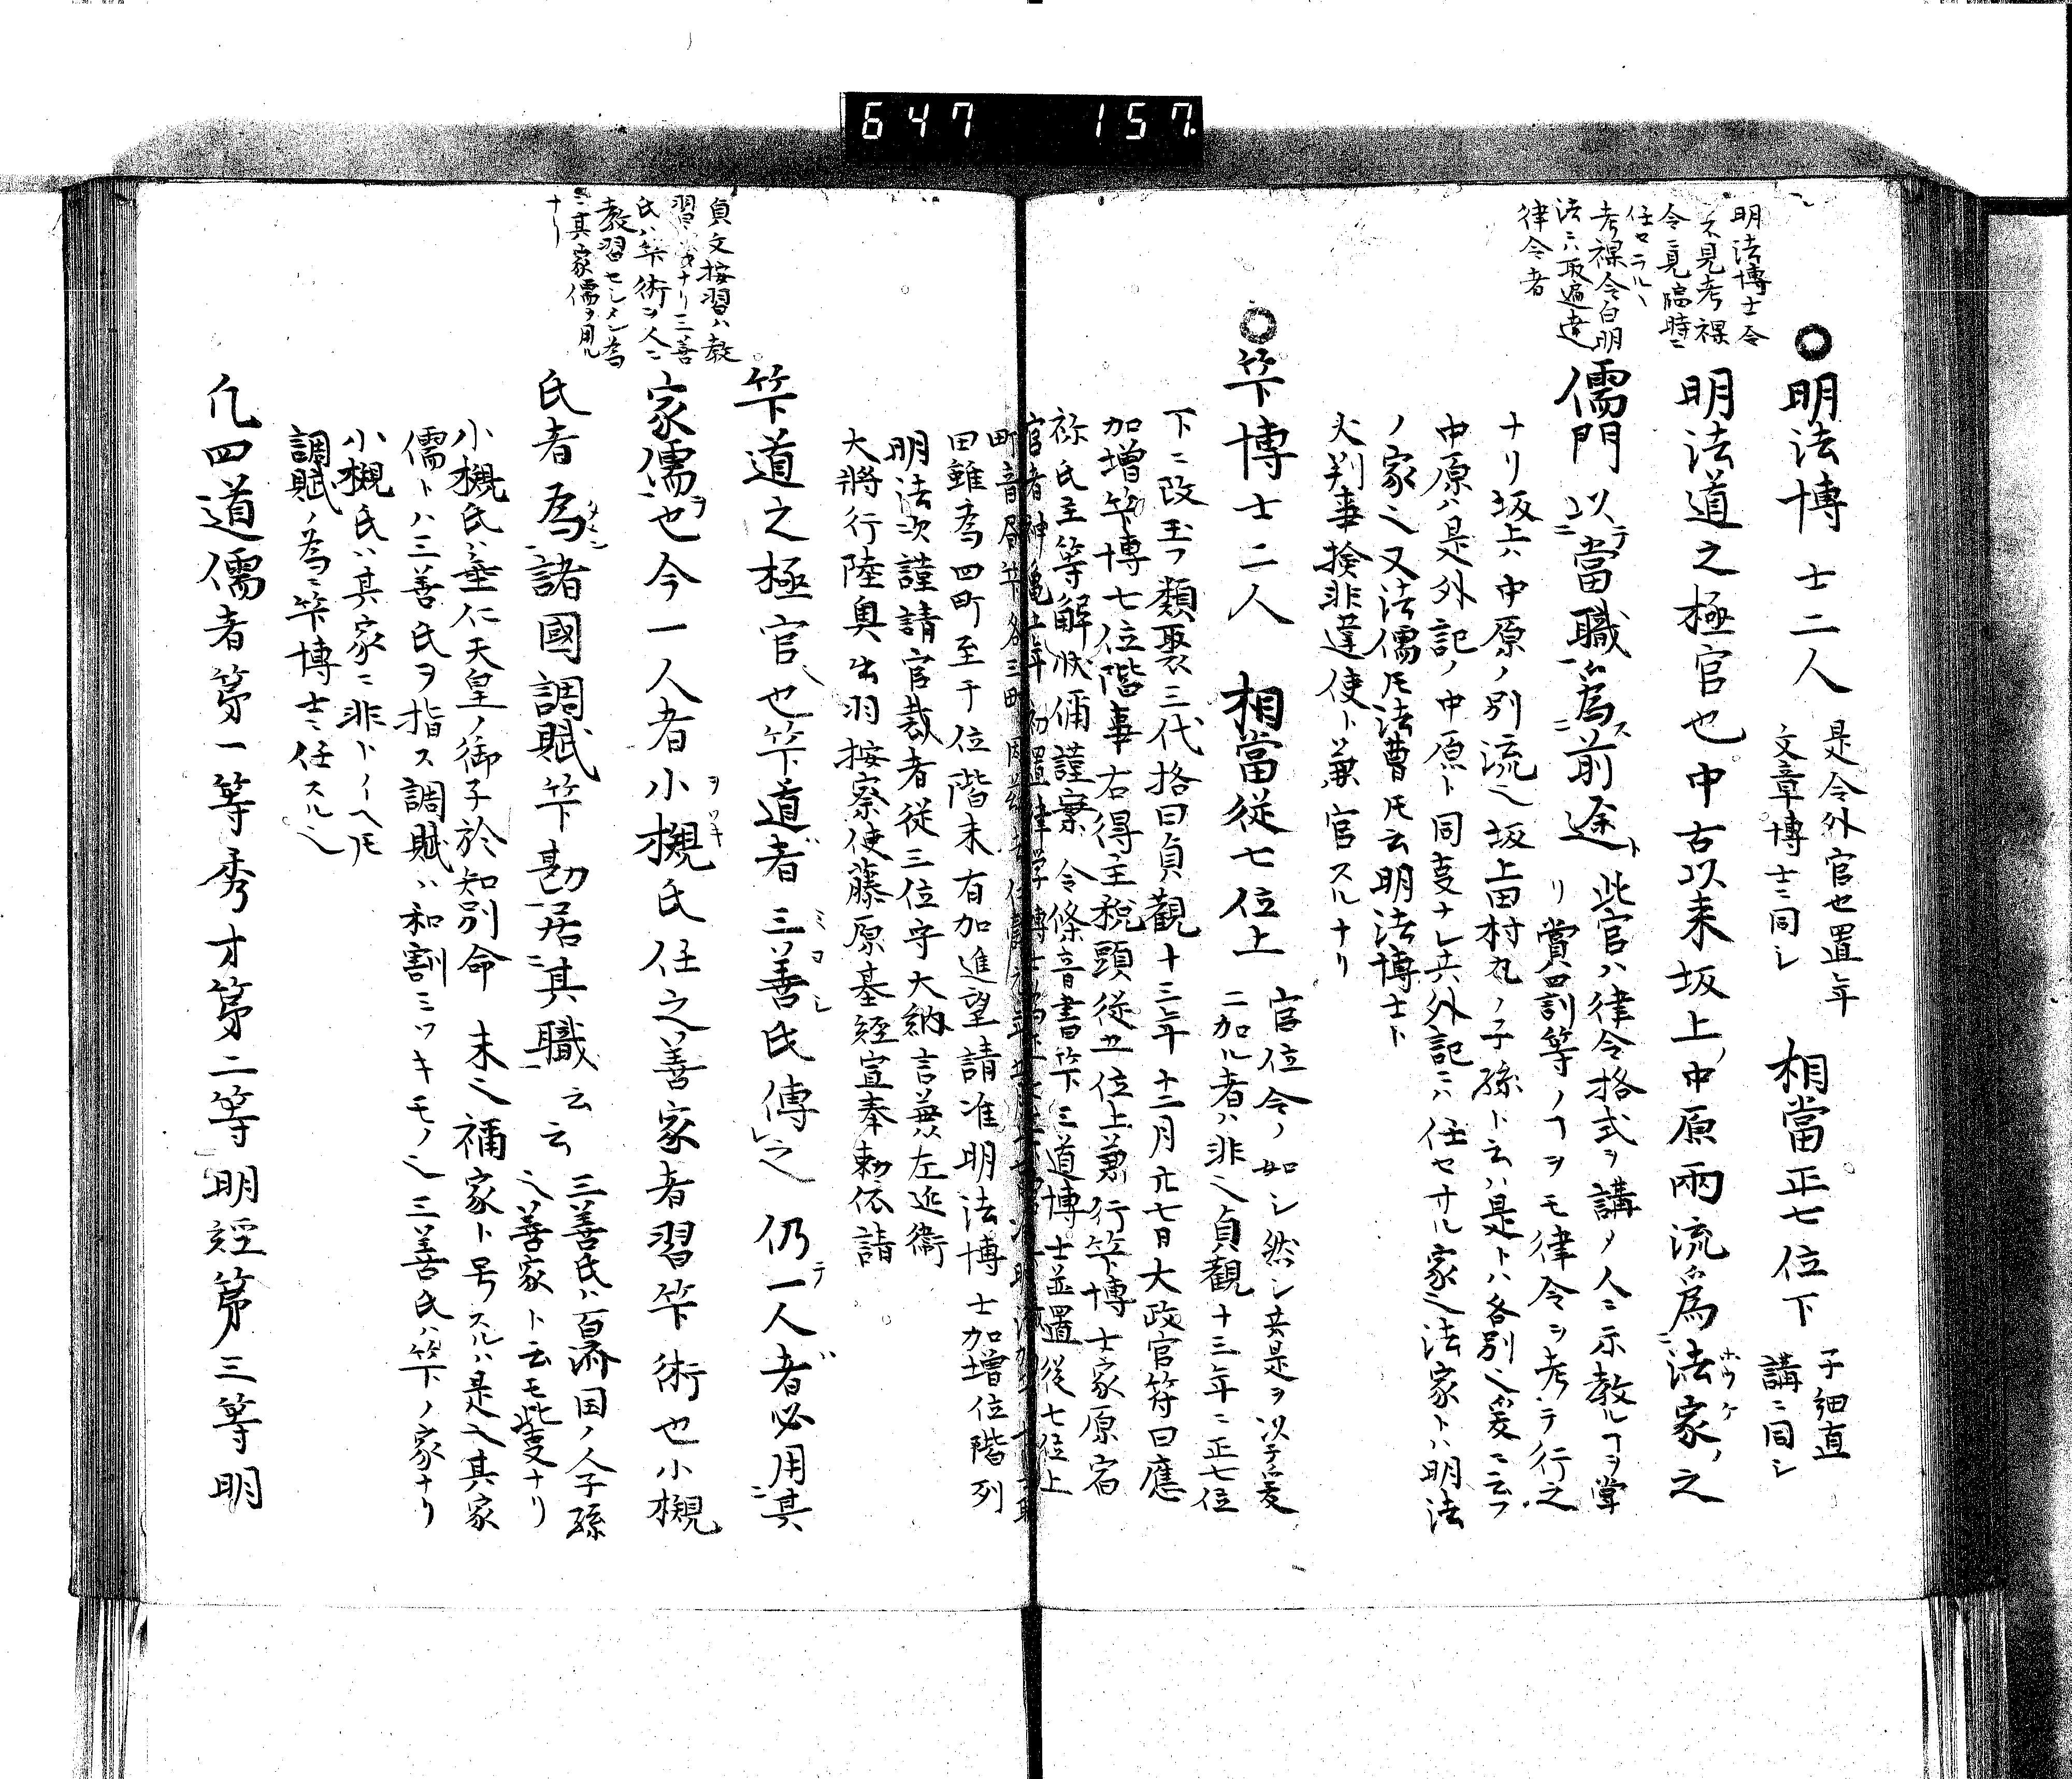 647 157
明法博士令
ニ不見考課
令ニ見臨時ニ
任セラル丶
考課令白明
法ニハ取遍達
律令者
○明法博士二人 是令外官也置年
文章博士ニ同シ 相當正七位下 子細直
講ニ同シ
明法道之極官也中古以来坂上中原兩流為法家之
ホウケノ
儒門以當職為前途 此官ハ律令格式ヲ講ノ人ニ示教ルヿヲ掌
リ賞罰等ノヿヲモ律令ヲ考テ行之
ナリ坂上ハ中原ノ別流也坂上田村丸ノ子孫ト云ハ是トハ各別也爰ニ云フ
中原ハ是外記ノ中原ト同叓ナレ共外記ニハ任セサル家也法家トハ明法
ノ家也又法儒トモ法曹トモ云明法博士ト
大判事撿非違使ト兼官スルナリ
○笇博士二人 相當從七位上 官位令ノ如シ然シ共是ヲ以テ爰
ニ加ル者ハ非也貞観十三年ニ正七位
下ニ改玉フ類聚三代格曰貞觀十三年十二月廿七日大政官符曰應
加増笇博士位階事右得主税頭從五位上兼行笇博士家原宿
祢氏主等解狀偁謹案令條音書笇三道博士並置從七位上
田雖為四町至于位階未有加進望請准明法博士加増位階列
明法次謹請官裁者從三位守大納言兼左近衞
大將行陸奥出羽按察使藤原基經宣奉勅依請
貞文按習ハ教
習ノ義ナリ三善
氏ハ笇術ヲ人ニ
教習セシメン為
ニ其家儒ヲ用ル
ナリ
笇道之極官也笇道者三善氏傳之仍一人者必用其
ミヨシ
家儒也今一人者小槻氏任之善家者習笇術也小槻
ヲツキ
氏者為諸國調賦笇勘居其職云云 三善氏ハ百濟国ノ人子孫
也善家ト云モ此叓ナリ
小槻氏ハ垂仁天皇ノ御子於知別命ノ末也禰家ト号スルハ是也其家
儒トハ三善氏ヲ指ス調賦ハ和訓ミツキモノ也三善氏ハ笇ノ家ナリ
小槻氏ハ其家ニ非トイヘトモ
調賦ノ為ニ笇博士ニ任スル也
凢四道儒者第一等秀才第二等明經第三等明